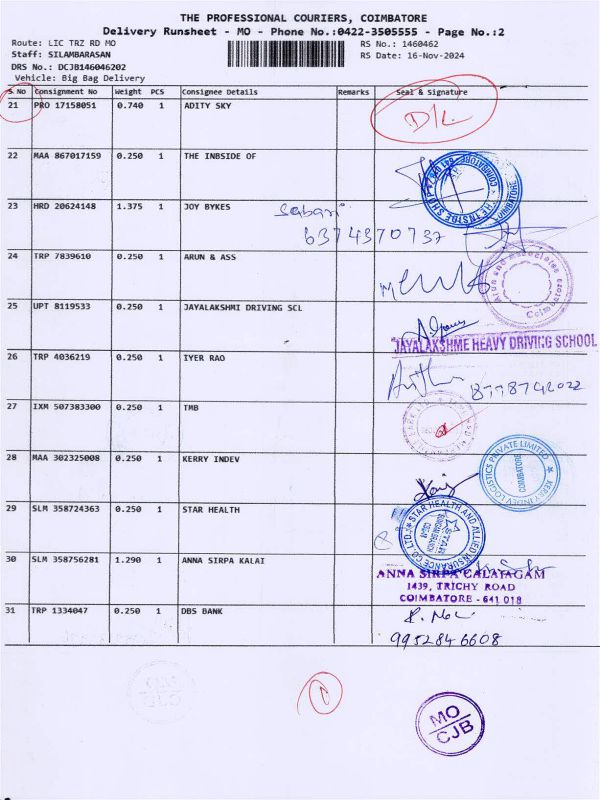 THE PROFESSIONAL COURIERS, COIMBATORE
Delivery Runsheet - MO - Phone No.:0422-3505555 - Page No.:2
Route: LIC TRZ RD MO
RS No.: 1460462
Staff: SILAMBARASAN
RS Date: 16-Nov-2024
DRS No.: DCJB146046202
Vehicle: Big Bag Delivery
S No Consignment No Weight PCS Consignee Details Remarks Seal & Signature
21 PRO 17158051 0.740 1 ADITY SKY D/L
22 MAA 867017159 0.250 1 THE INBSIDE OF
THE INSIDE SHOP COIMBATORE
23 HRD 20624148 1.375 1 JOY BYKES Sabari
6374370737
24 TRP 7839610 0.250 1 ARUN & ASS
Arun and Associates Coimbatore
25 UPT 8119533 0.250 1 JAYALAKSHMI DRIVING SCL
JAYALAKSHME HEAVY DRIVING SCHOOL
26 TRP 4036219 0.250 1 IYER RAO
8778742022
27 IXM 507383300 0.250 1 TMB
28 MAA 302325008 0.250 1 KERRY INDEV
KERRY INDEV LOGISTICS PRIVATE LIMITED
COIMBATORE
29 SLM 358724363 0.250 1 STAR HEALTH
STAR HEALTH AND ALLIED INSURANCE CO. LTD.
STAR
30 SLM 358756281 1.290 1 ANNA SIRPA KALAI
ANNA SIRPA CALAYAGAM
1439, TRICHY ROAD
COIMBATORE - 641 018
31 TRP 1334047 0.250 1 DBS BANK
9952846608
MO
CJB